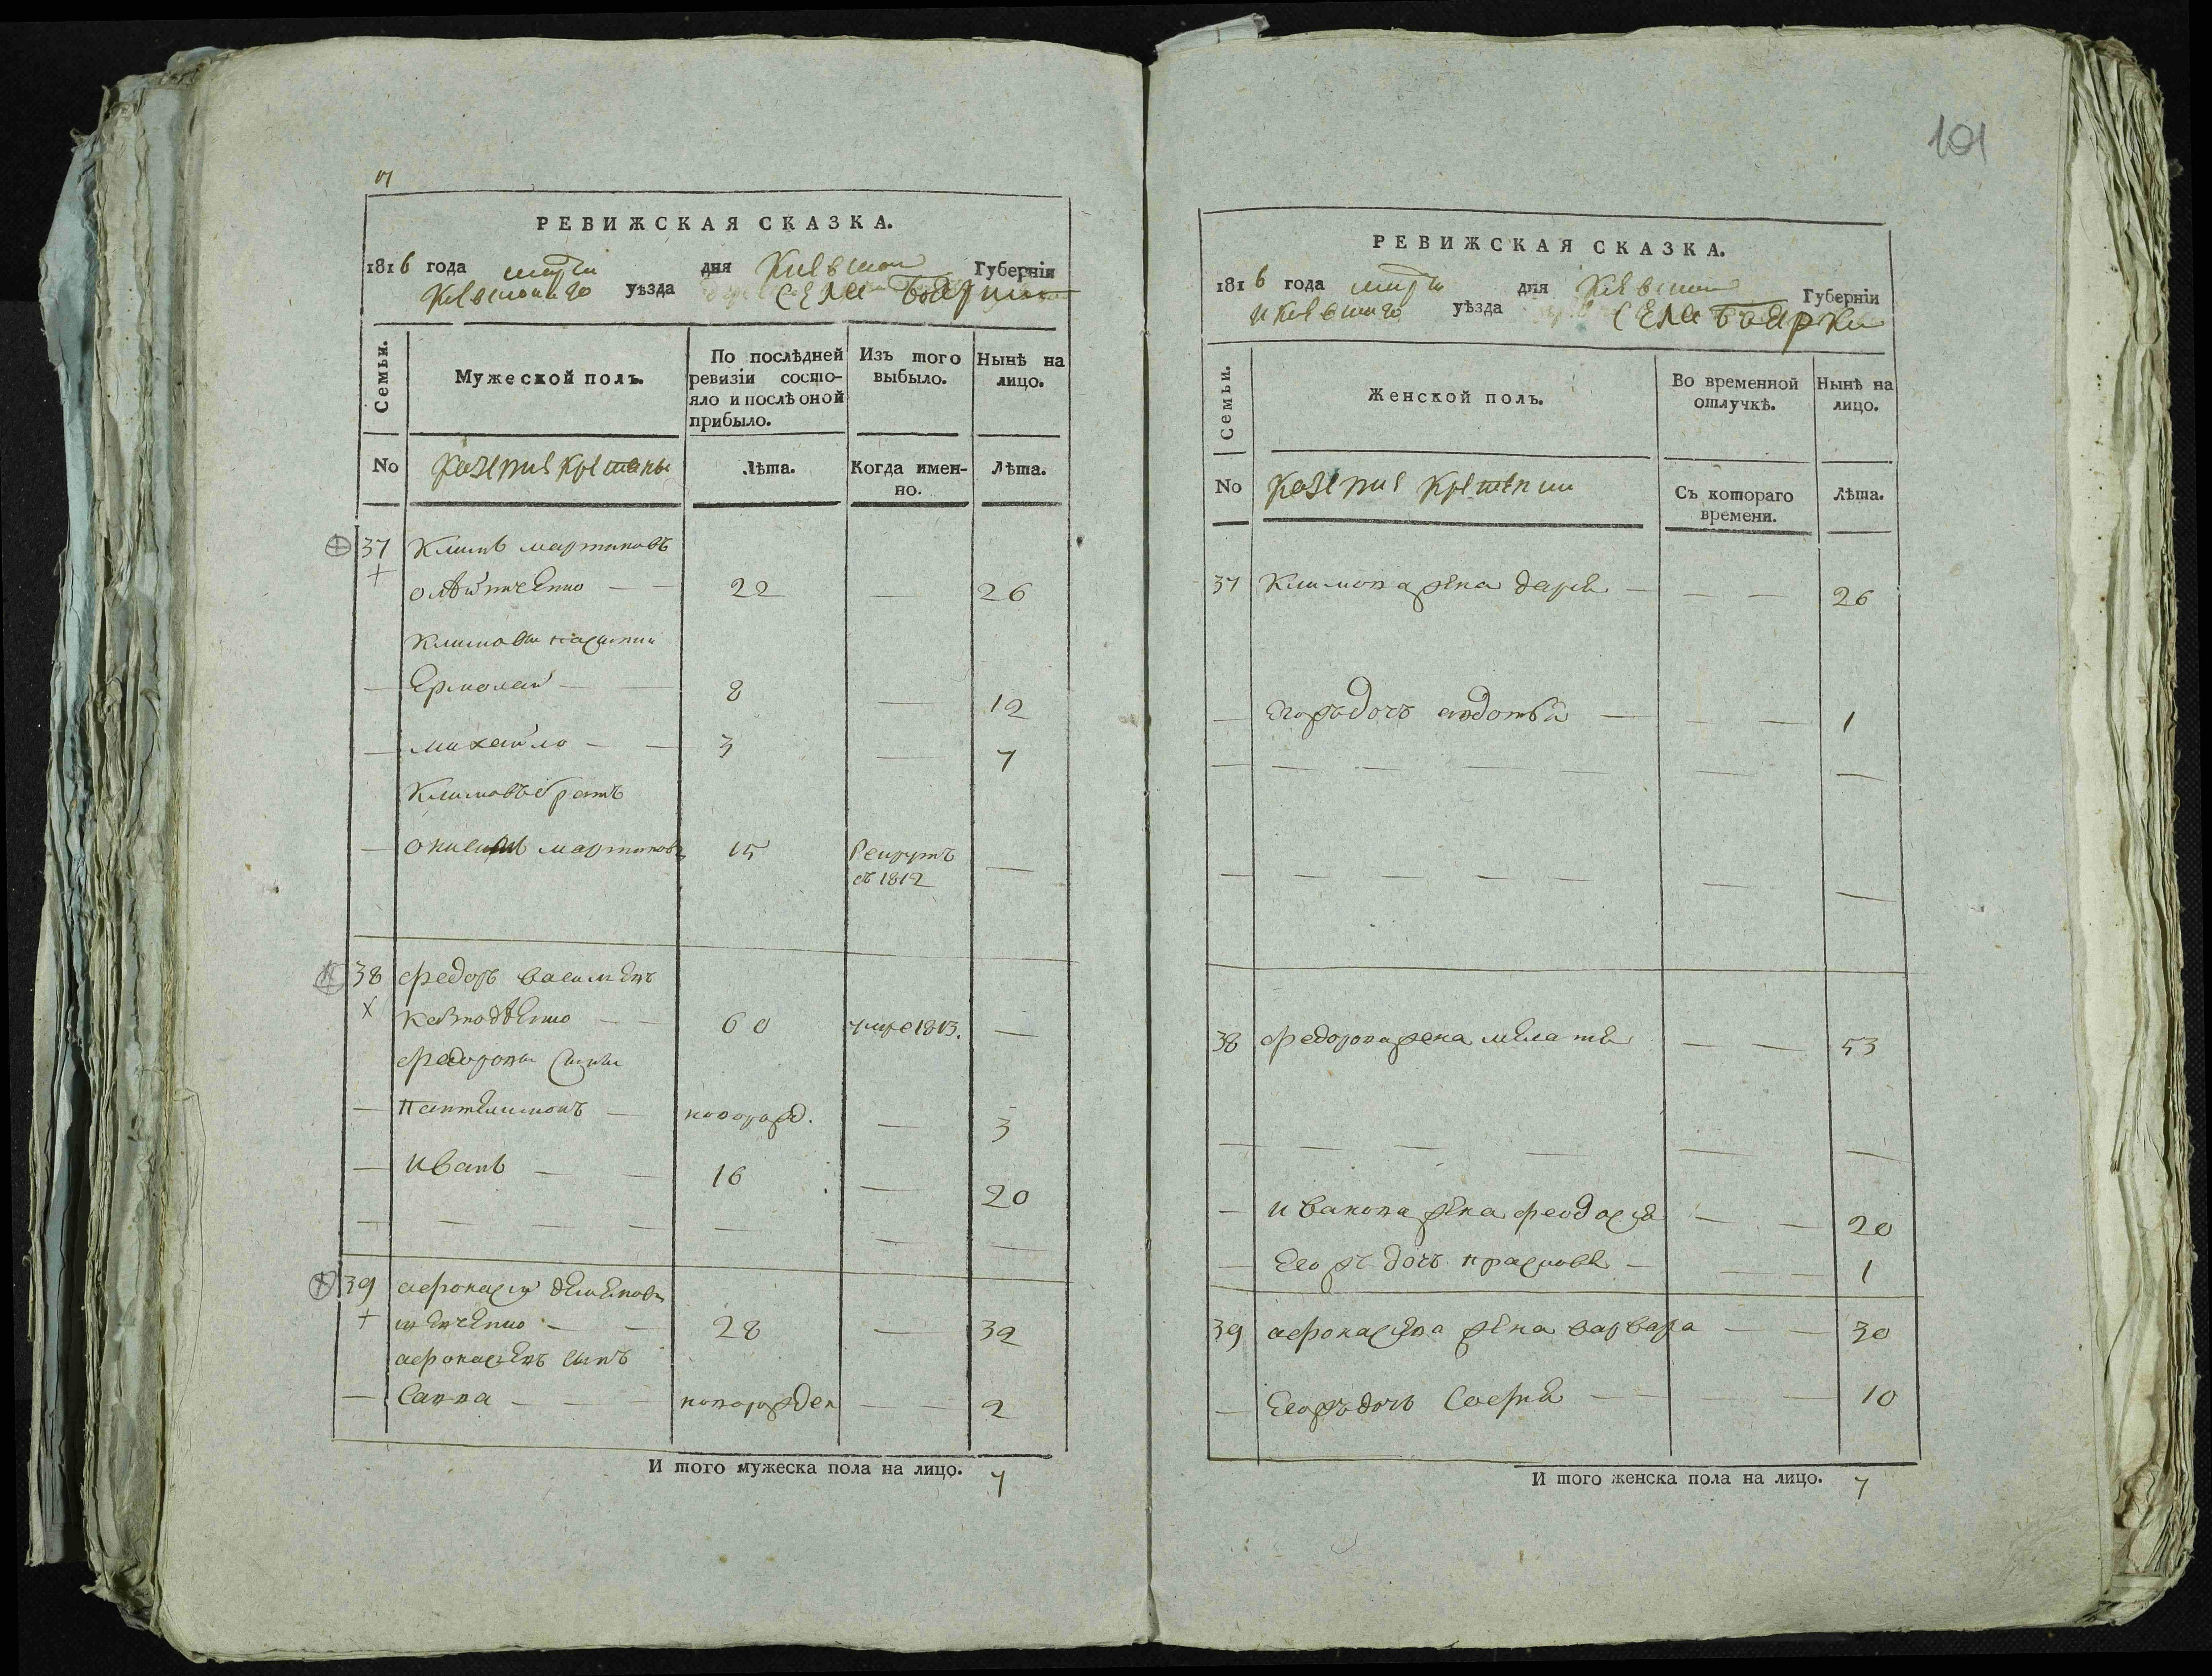 РЕВИЖСКАЯ СКАЗКА.
1816 года марта дня Киевской Губерніи
Киевскаго уѣзда Села Боярки
Семьи.
Мужеской полъ.
По послѣдней ревизіи состояло и послѣ оной прибыло.
Изъ того выбыло.
Нынѣ на лицо.
No
Казенние Крестяны
Лѣта.
Когда именно.
Лѣта.
37 Климъ мартиновъ
22 — 26
Климови
— Ермолай — — 8 — 12
— михайло — — 3 — 7
Климовъ братъ
— мартиновъ 15 Рекрутъ —
въ 1812
38 федоръ василиевъ
— — 60 умре 1813. —
федорови сини
— Пантелимонъ — новорожд. — 3
— Иванъ — — 16 — 20
39 афонасий деменовъ
— — 28 — 32
афонасиевъ синъ
— Савва — — новорожден — — 2
И того мужеска пола на лицо. 7
101
РЕВИЖСКАЯ СКАЗКА.
1816 года марта дня Киевской Губерніи
Киевскаго уѣзда Села Боярки
Семьи.
Женской полъ.
Во временной отлучкѣ.
Нынѣ на лицо.
No
Казенние Крестянки
Съ котораго времени.
Лѣта.
37 Климова жена дария — — — 26
— Егожъ дочь авдотия — — — 1
38 федорова жена мелания — — 53
— Иванова жена феодосия — — 20
— Егожъ дочь прасковия — — — 1
39 афонасиева жена варвара — — 30
— Егожъ дочь София — — — — 10
И того женска пола на лицо. 7